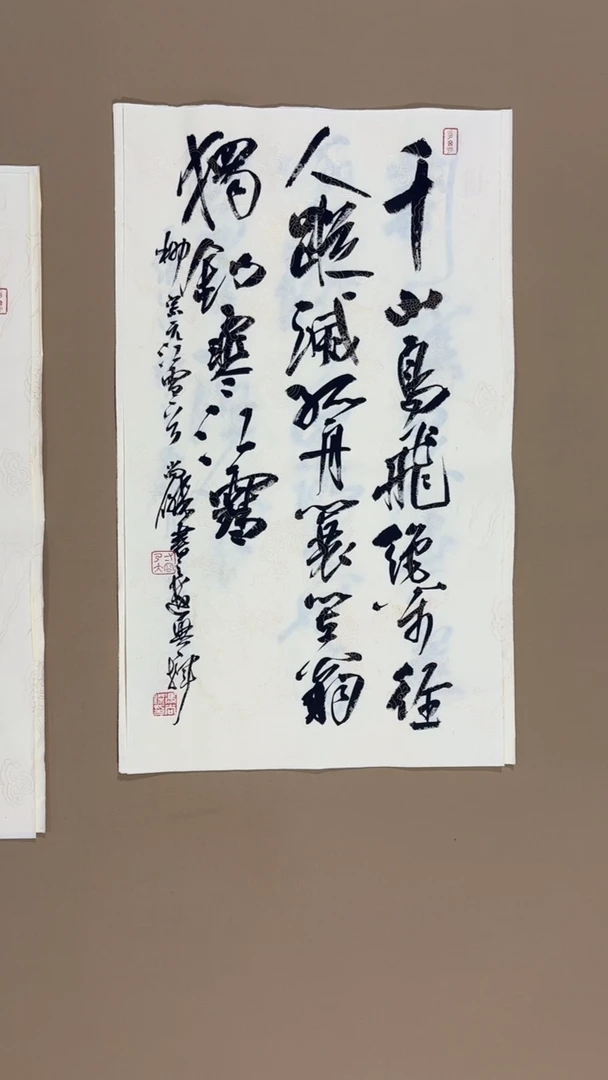 千山鳥飛絕萬徑
人蹤滅孤舟蓑笠翁
獨釣寒江雪
柳宗元江雪 書